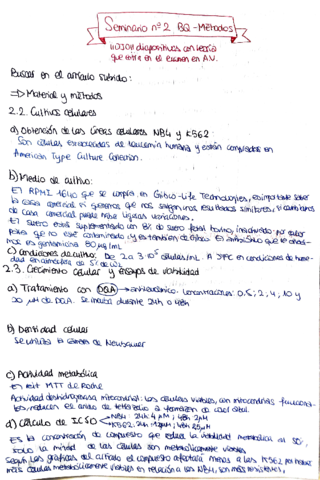 Seminario nº2 BQ-Métodos
diapositivas con teoría
que entra en el examen en A.V.
Buscar en el artículo subido:
⇒ Material y métodos
2.2. Cultivos celulares
a) Obtención de las líneas celulares NB4 y K562:
Son células de leucemia humana y están compradas en
American Type Culture
b) Medio de cultivo:
El RPMI 1640 que se compra en Gibco-Life Technologies, es importante saber
la casa comercial si queremos que nos salgan los resultados similares, si cambiamos
de casa comercial puede haber ligeras variaciones.
El suero está suplementado con 8% de suero fetal bovino, inactivado por calor
para que no esté contaminado, y El antibiótico que le
es gentamicina 80 µg/mL
c) Condiciones de cultivo: De 2 a 3 10⁵ células/mL. A 37ºC en condiciones de hume-
dad en de 5% de CO₂
2.3. Crecimiento celular y ensayos de viabilidad
a) Tratamiento con DCA → Concentraciones: 0.5; 2; 4; 10 y
20 µM de DCA. Se incuba durante 24h o 48h
b) Densidad celular
Se utiliza la cámara de Neubauer
c) Actividad metabólica
El kit MTT de Roche
Actividad deshidrogenasa mitocondrial: las células viables, con mitocondrias funciona-
les, reducen el anillo de tetrazolio a formazán de color
d) Cálculo de IC50 NB4: 24h µM; 48h 2µM
K562: 24h µM; 48h µM
Es la concentración de compuesto que reduce la viabilidad metabólica al 50%,
solo la mitad de las células son metabólicamente viables
Según las gráficas del artículo el compuesto afectará menos a las K562 por haber
más células metabólicamente viables en relación a las NB4, son más resistentes,